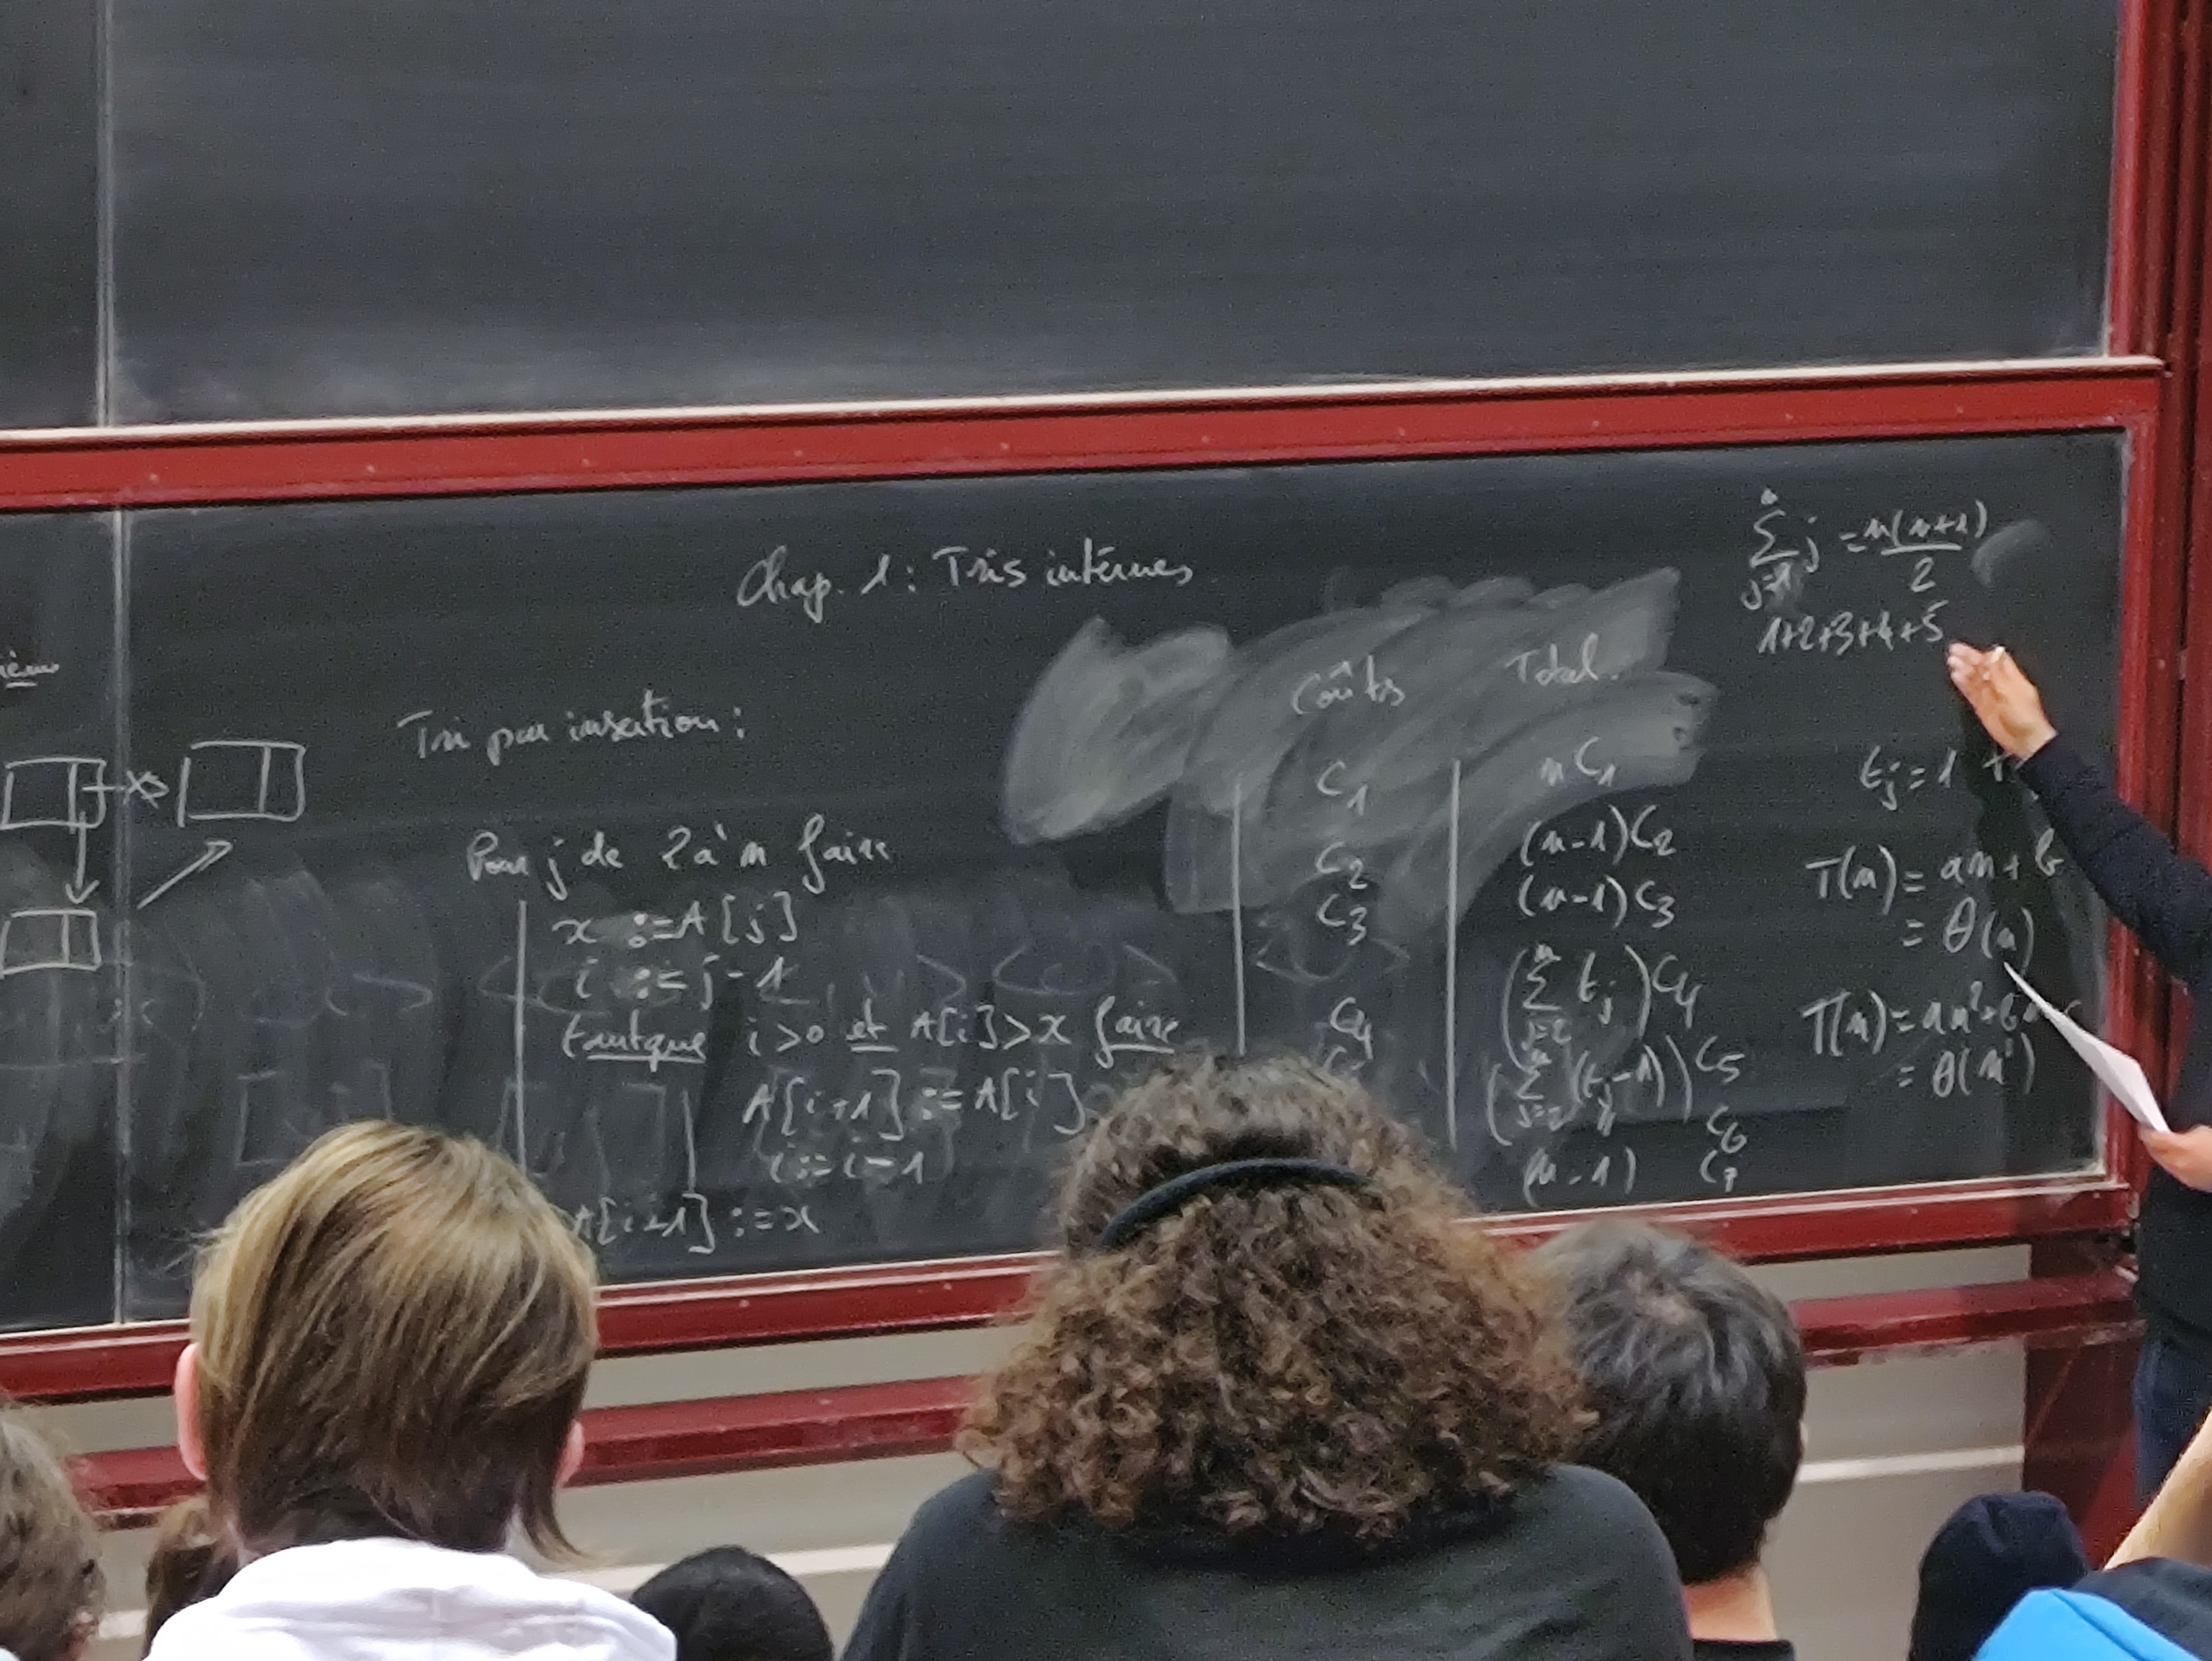 Chap. 1 : Tris internes
Tri par insertion :
Pour j de 2 à n faire
x := A[j]
i := j-1
tantque i>0 et A[i]>x faire
A[i+1] := A[i]
i := i-1
A[i+1] := x
Coûts
C1
C2
C3
C4
Total
nC1
(n-1)C2
(n-1)C3
(∑_{j=2}^{n} tj)C4
(∑_{j=2}^{n} (tj-1))C5
C6
(n-1) C7
∑_{j=1}^{n} j = n(n+1)/2
1+2+3+4+5
tj = 1
T(n) = an+b
= θ(n)
T(n) = an²+b
= θ(n²)